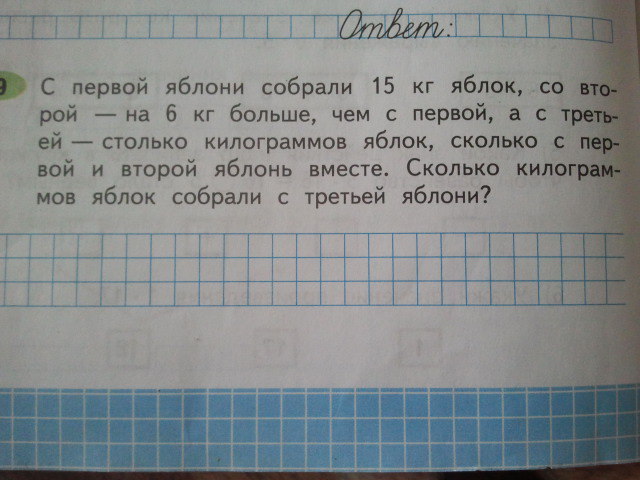 Ответ:
9 С первой яблони собрали 15 кг яблок, со вто-
рой — на 6 кг больше, чем с первой, а с треть-
ей — столько килограммов яблок, сколько с пер-
вой и второй яблонь вместе. Сколько килограм-
мов яблок собрали с третьей яблони?